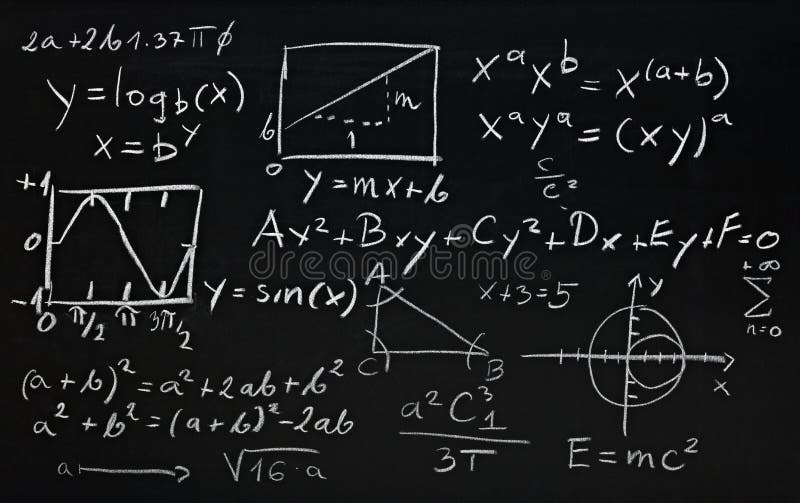 2a+2b1.37πφ
y=log_b(x)
x=b^y
b
1
m
0
y=mx+b
x^a x^b = x^(a+b)
x^a y^a = (xy)^a
c/c²
+1
0
-1
0 π/2 π 3π/2
y=sin(x)
Ay²+Bxy+Cy²+Dx+Ey+F=0
x+3=5
A
C
B
y
x
+∞
Σ
n=0
(a+b)²=a²+2ab+b²
a²+b²=(a+b)²-2ab
a ⟶ √16·a
a²C₁³
3T
E=mc²
dreamstime